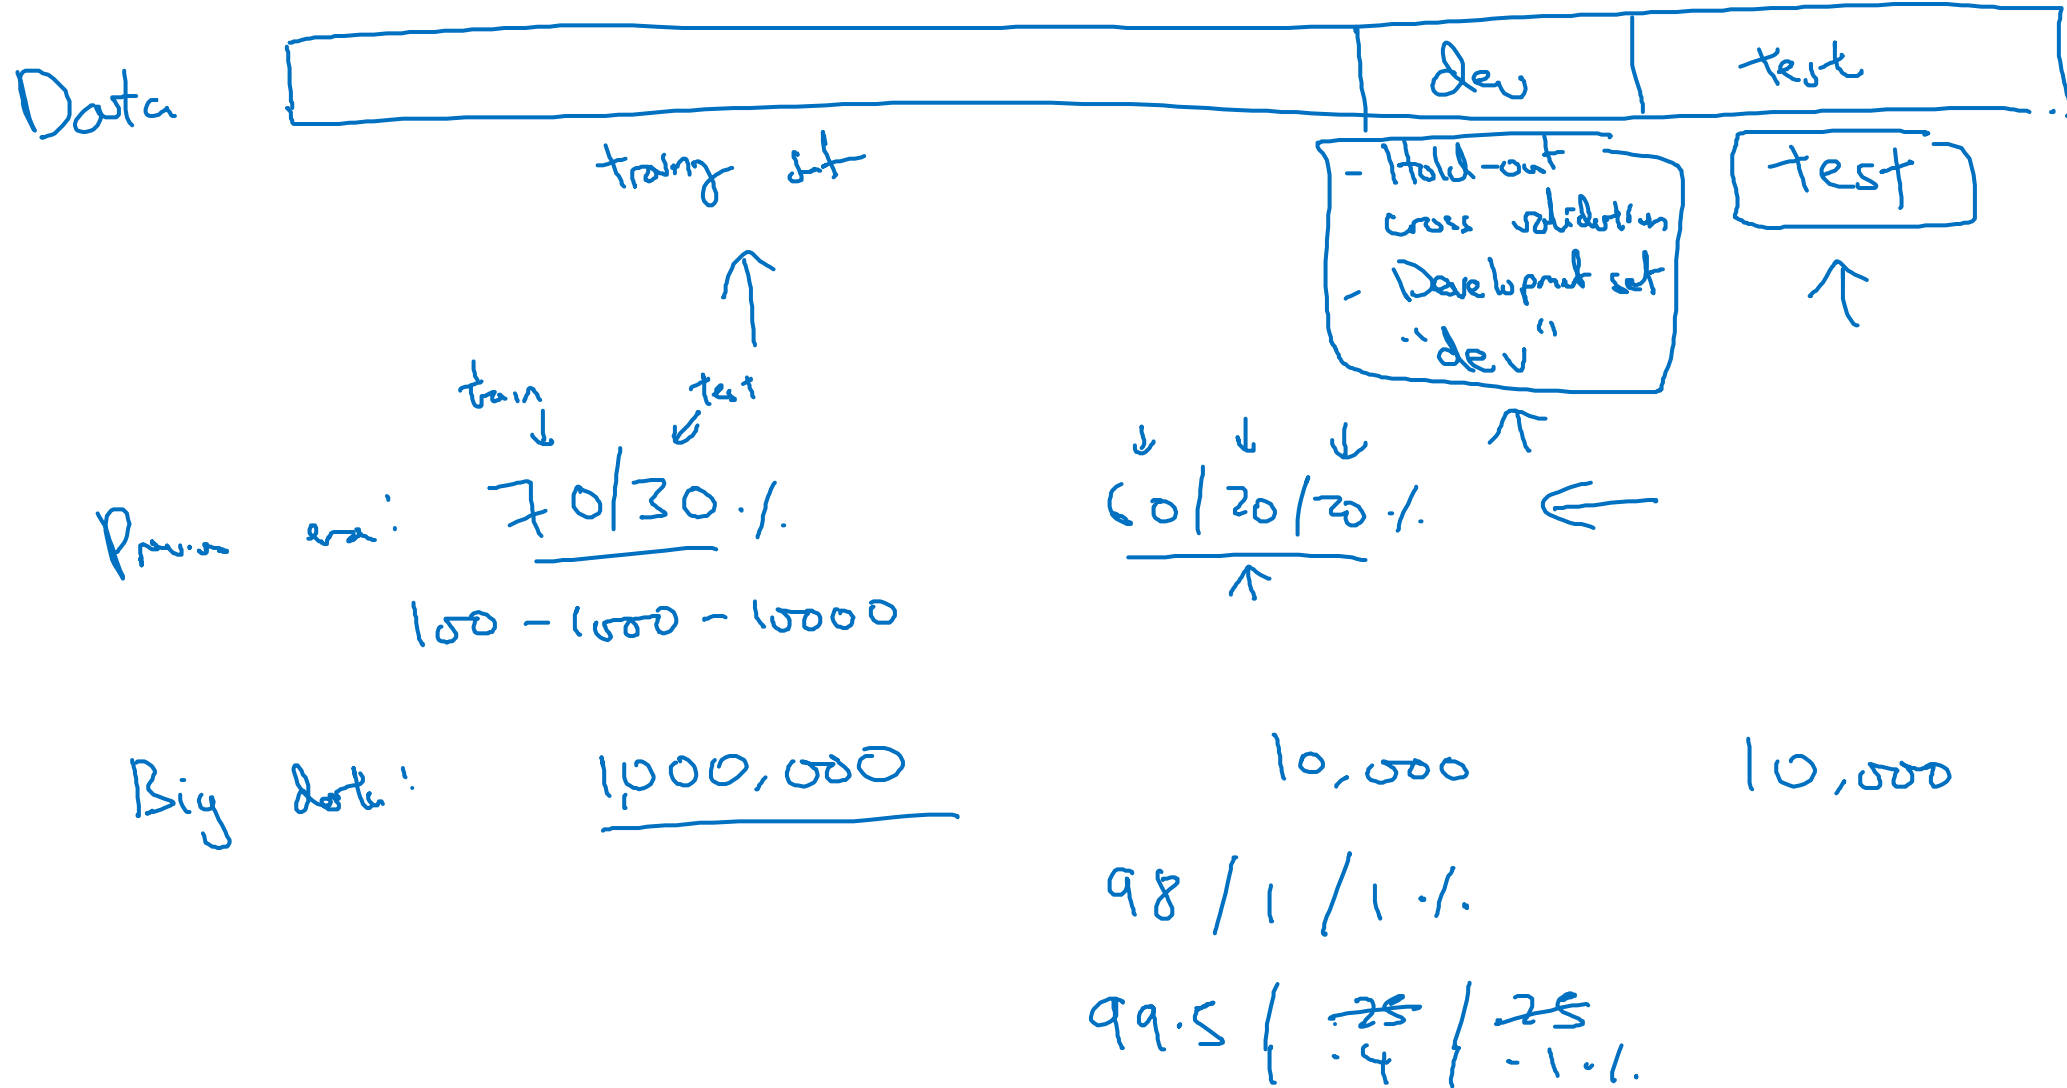 Data dev test
training set
- Hold-out
cross validation
- Development set
"dev"
test
train test
Previous era: 70/30% 60/20/20%
100-1000-10000
Big data: 1,000,000 10,000 10,000
98/1/1%
99.5/.25/.25
.4 .1%